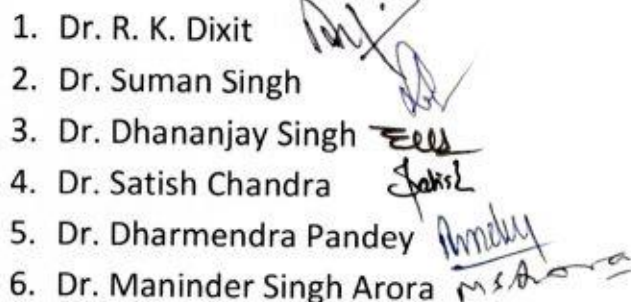 1. Dr. R. K. Dixit
2. Dr. Suman Singh
3. Dr. Dhananjay Singh
4. Dr. Satish Chandra Satish
5. Dr. Dharmendra Pandey
6. Dr. Maninder Singh Arora MSArora